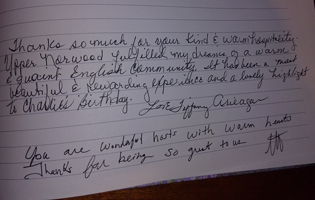 Thanks so much for your kind & warm hospitality.
Upper Norwood fulfilled my dreams of a warm
& quaint English Community. It has been a most
beautiful & rewarding experience and a lovely highlight
to Charlie's Birthday.
Love Tiffany
You are wonderful hosts with warm hearts
Thanks for being so great to us